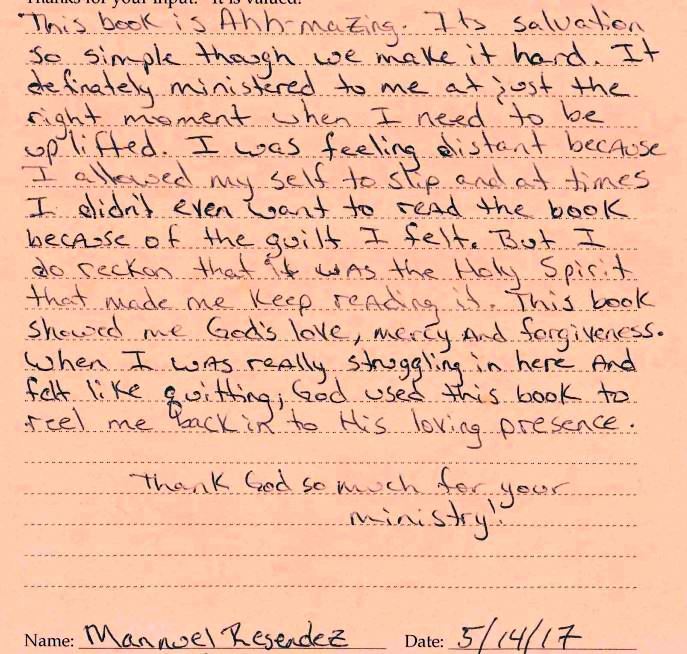 Thanks for your input. It is valued!
This book is Ahh-mazing. Its salvation
so simple though we make it hard. It
definately ministered to me at just the
right moment when I need to be
uplifted. I was feeling distant because
I allowed my self to slip and at times
I didn't even want to read the book
because of the guilt I felt. But I
do reckon that it was the Holy Spirit
that made me keep reading it. This book
showed me God's love, mercy and forgiveness.
When I was really struggling in here and
felt like quitting; God used this book to
reel me back in to His loving presence.
Thank God so much for your
ministry!
Name: Mannuel Resendez Date: 5/14/17